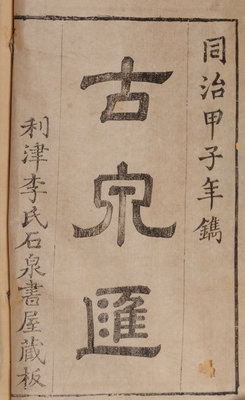 同治甲子年鐫
古泉匯
利津李氏石泉書屋藏板